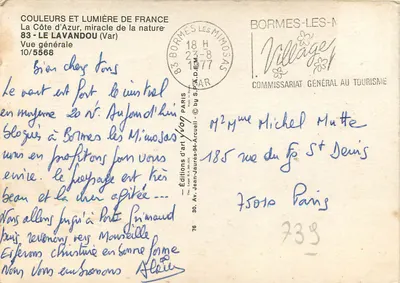 COULEURS ET LUMIÈRE DE FRANCE
La Côte d'Azur, miracle de la nature
83 - LE LAVANDOU (Var)
Vue générale
10/5568
Bien chers tous
Le vent est fort le mistral
en moyenne 20 N. Aujourd'hui
bloqués à Bormes les Mimosas
nous en profitons pour vous
écrire. le paysage est très
beau et la mer agitée...
Nous allons jusqu'à Port Grimaud
puis reviendrons vers Marseille
Espérons Christine en bonne forme
Nous vous embrassons Alain
Editions d'art yvon PARIS
© by S.P.A.D.E.M.
83 BORMES LES MIMOSAS
18 H
23-8
1977
VAR
BORMES-LES-M
Village
COMMISSARIAT GÉNÉRAL AU TOURISME
M. Mme Michel Mutte
185 rue du Fg St Denis
75010 Paris
739